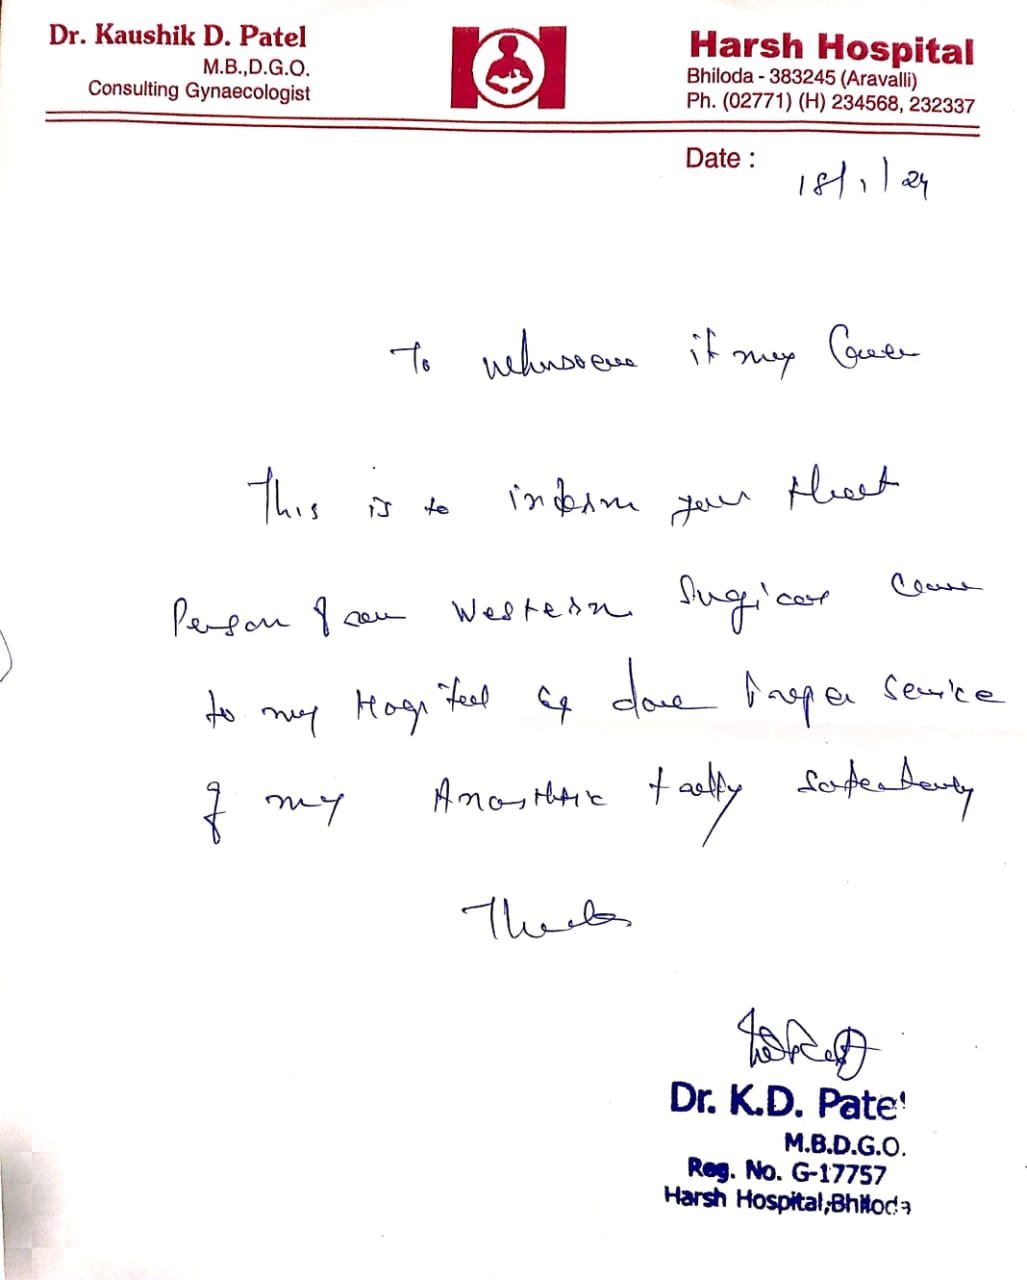 Dr. Kaushik D. Patel
M.B.,D.G.O.
Consulting Gynaecologist
Harsh Hospital
Bhiloda - 383245 (Aravalli)
Ph. (02771) (H) 234568, 232337
Date : 18/1/24
To whomsoever it may
This is to inform your that
Person from Western Surgical Came
to my Hospital & done Proper Service
of my
Thanks
Dr. K.D. Patel
M.B.D.G.O.
Reg. No. G-17757
Harsh Hospital,Bhiloda